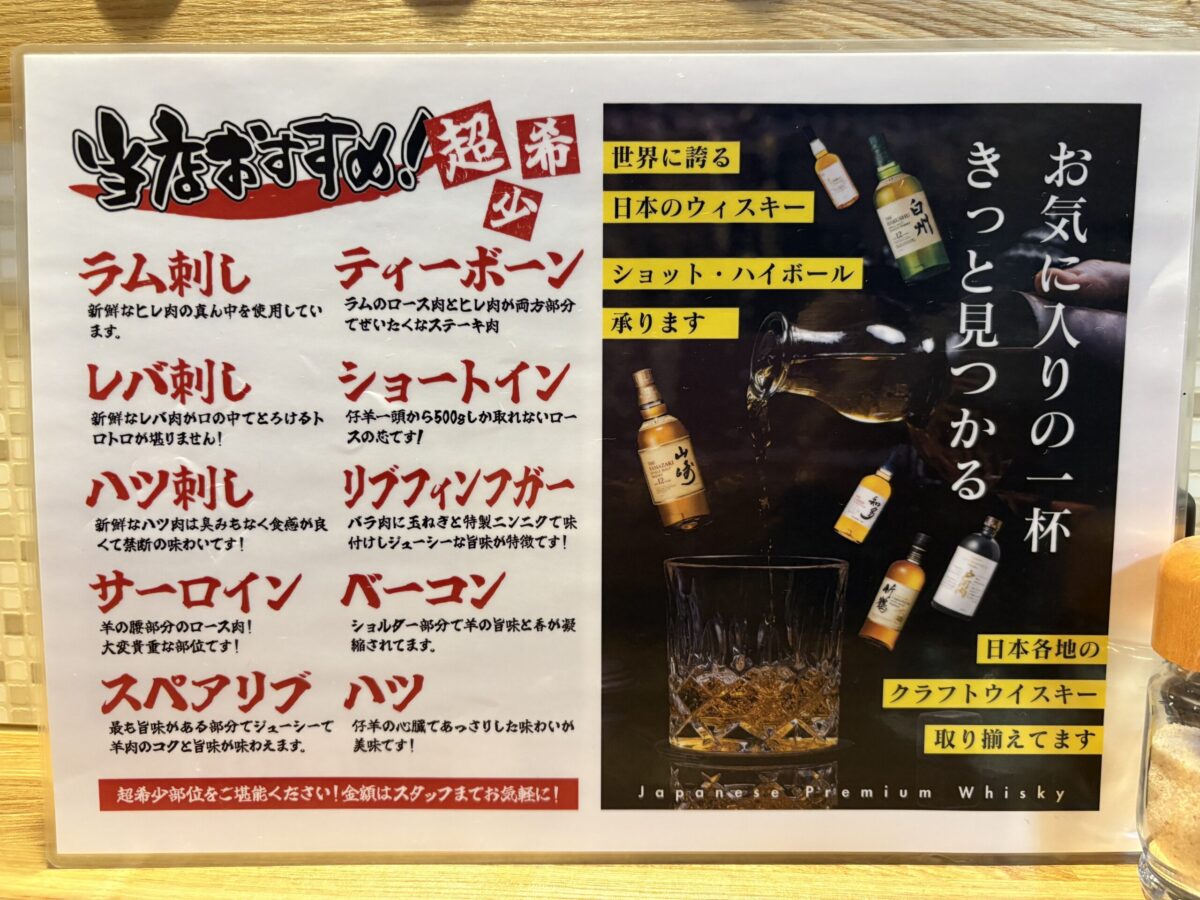 当店おすすめ!
超
希
少
ラム刺し
新鮮なヒレ肉の真ん中を使用してい
ます。
レバ刺し
新鮮なレバ肉が口の中でとろけるト
ロトロが堪りません!
ハツ刺し
新鮮なハツ肉は臭みもなく食感が良
くて禁断の味わいです!
サーロイン
羊の腰部分のロース肉!
大変貴重な部位です!
スペアリブ
最も旨味がある部分でジューシーで
羊肉のコクと旨味が味わえます。
ティーボーン
ラムのロース肉とヒレ肉が両方部分
でぜいたくなステーキ肉
ショートイン
仔羊一頭から500gしか取れないロー
スの芯です!
リブフィンフガー
バラ肉に玉ねぎと特製ニンニクで味
付けしジューシーな旨味が特徴です!
ベーコン
ショルダー部分で羊の旨味と香が凝
縮されてます。
ハツ
仔羊の心臓であっさりした味わいが
美味です!
超希少部位をご堪能ください!金額はスタッフまでお気軽に!
世界に誇る
日本のウィスキー
ショット・ハイボール
承ります
お気に入りの一杯
きっと見つかる
白州
12
山崎
12
知多
竹鶴
日本各地の
クラフトウイスキー
取り揃えてます
Japanese Premium Whisky